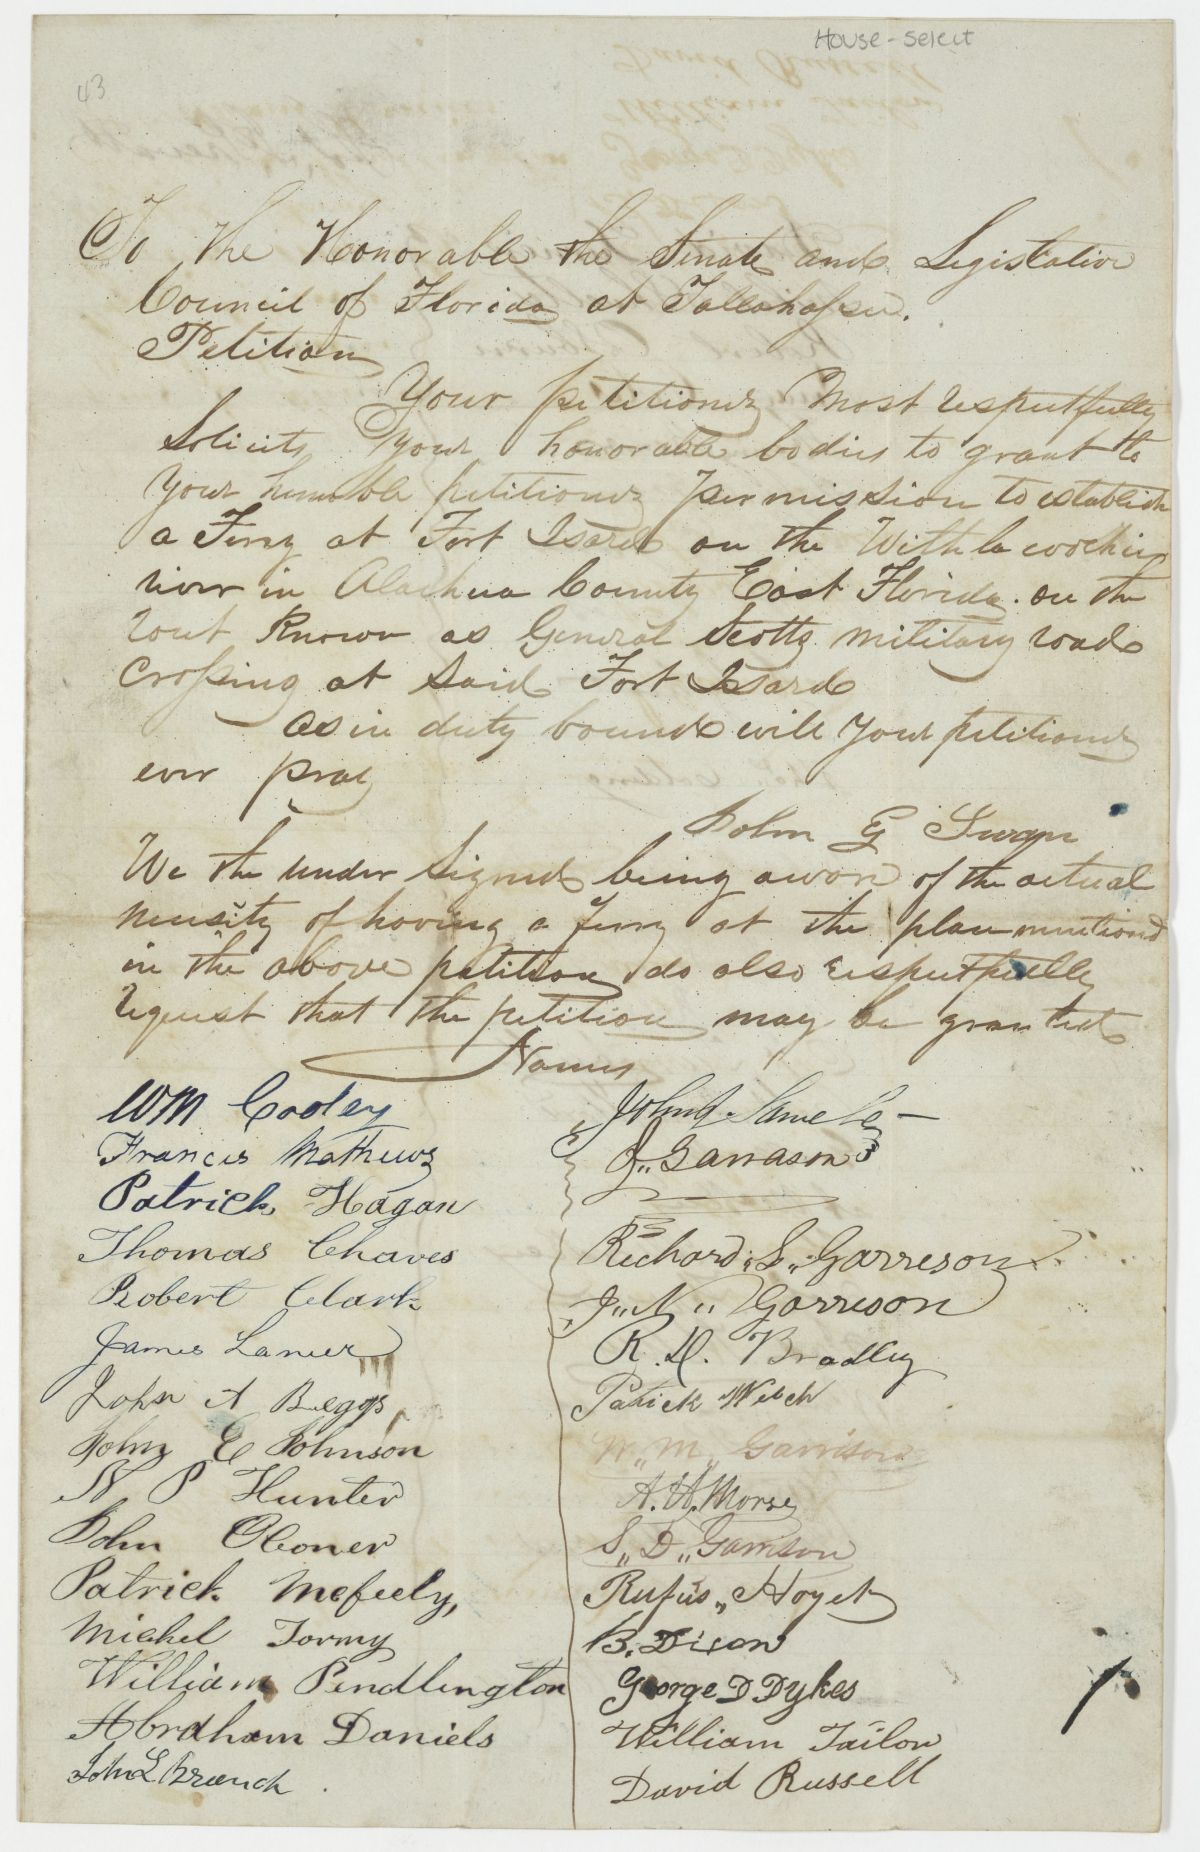 House-Select
43
To the Honorable the Senate and Legistative
Council of Florida at Tallahassee.
Petition
Your petitioners Most respectfully
Solicits your honorable bodies to grant to
Your humble petitioners permission to establish
a Ferry at Fort Isard on the Withlacoochie
river in Alachua County East Florida. on the
rout Known as General Scotts military road
Crossing at Said Fort Issard
as in duty bound will your petitioners
ever pray
John G Swan
We the under Signed being awore of the actual
necessity of having a ferry at the place mentiond
in the above petition do also respectfully
request that the petition may be granted
Names
WM Cooley
Francis Mathews
Patrick Hagan
Thomas Chaves
Robert Clark
James Lanier
John A Beggs
John E Johnson
N P Hunter
John Oconer
Patrick Mcfeely,
Michel Tormy
William Pendlington
Abraham Daniels
John L Branch
John
J,, Garrason
Richard,, S,, Garreson
J,, N,, Garrison
R. D. Bradley
Patrick Welch
W,, M,, Garrison
A. H. Morse
S,, D,, Garrison
Rufus,, Hoyet
B. Dixon
George D Dykes
William Tailor
David Russell